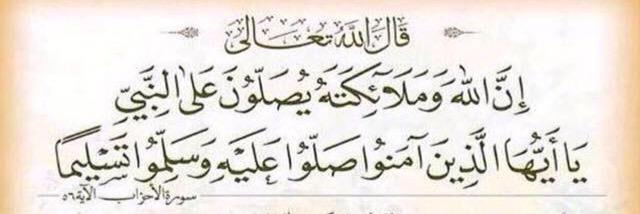 قال الله تعالى
إِنَّ اللهَ وَمَلَآئِكَتَهُ يُصَلُّونَ عَلَى النَّبِيِّ
يَا أَيُّهَا الَّذِينَ آمَنُوا صَلُّوا عَلَيْهِ وَسَلِّمُوا تَسْلِيمًا
سورة الأحزاب الآية ٥٦